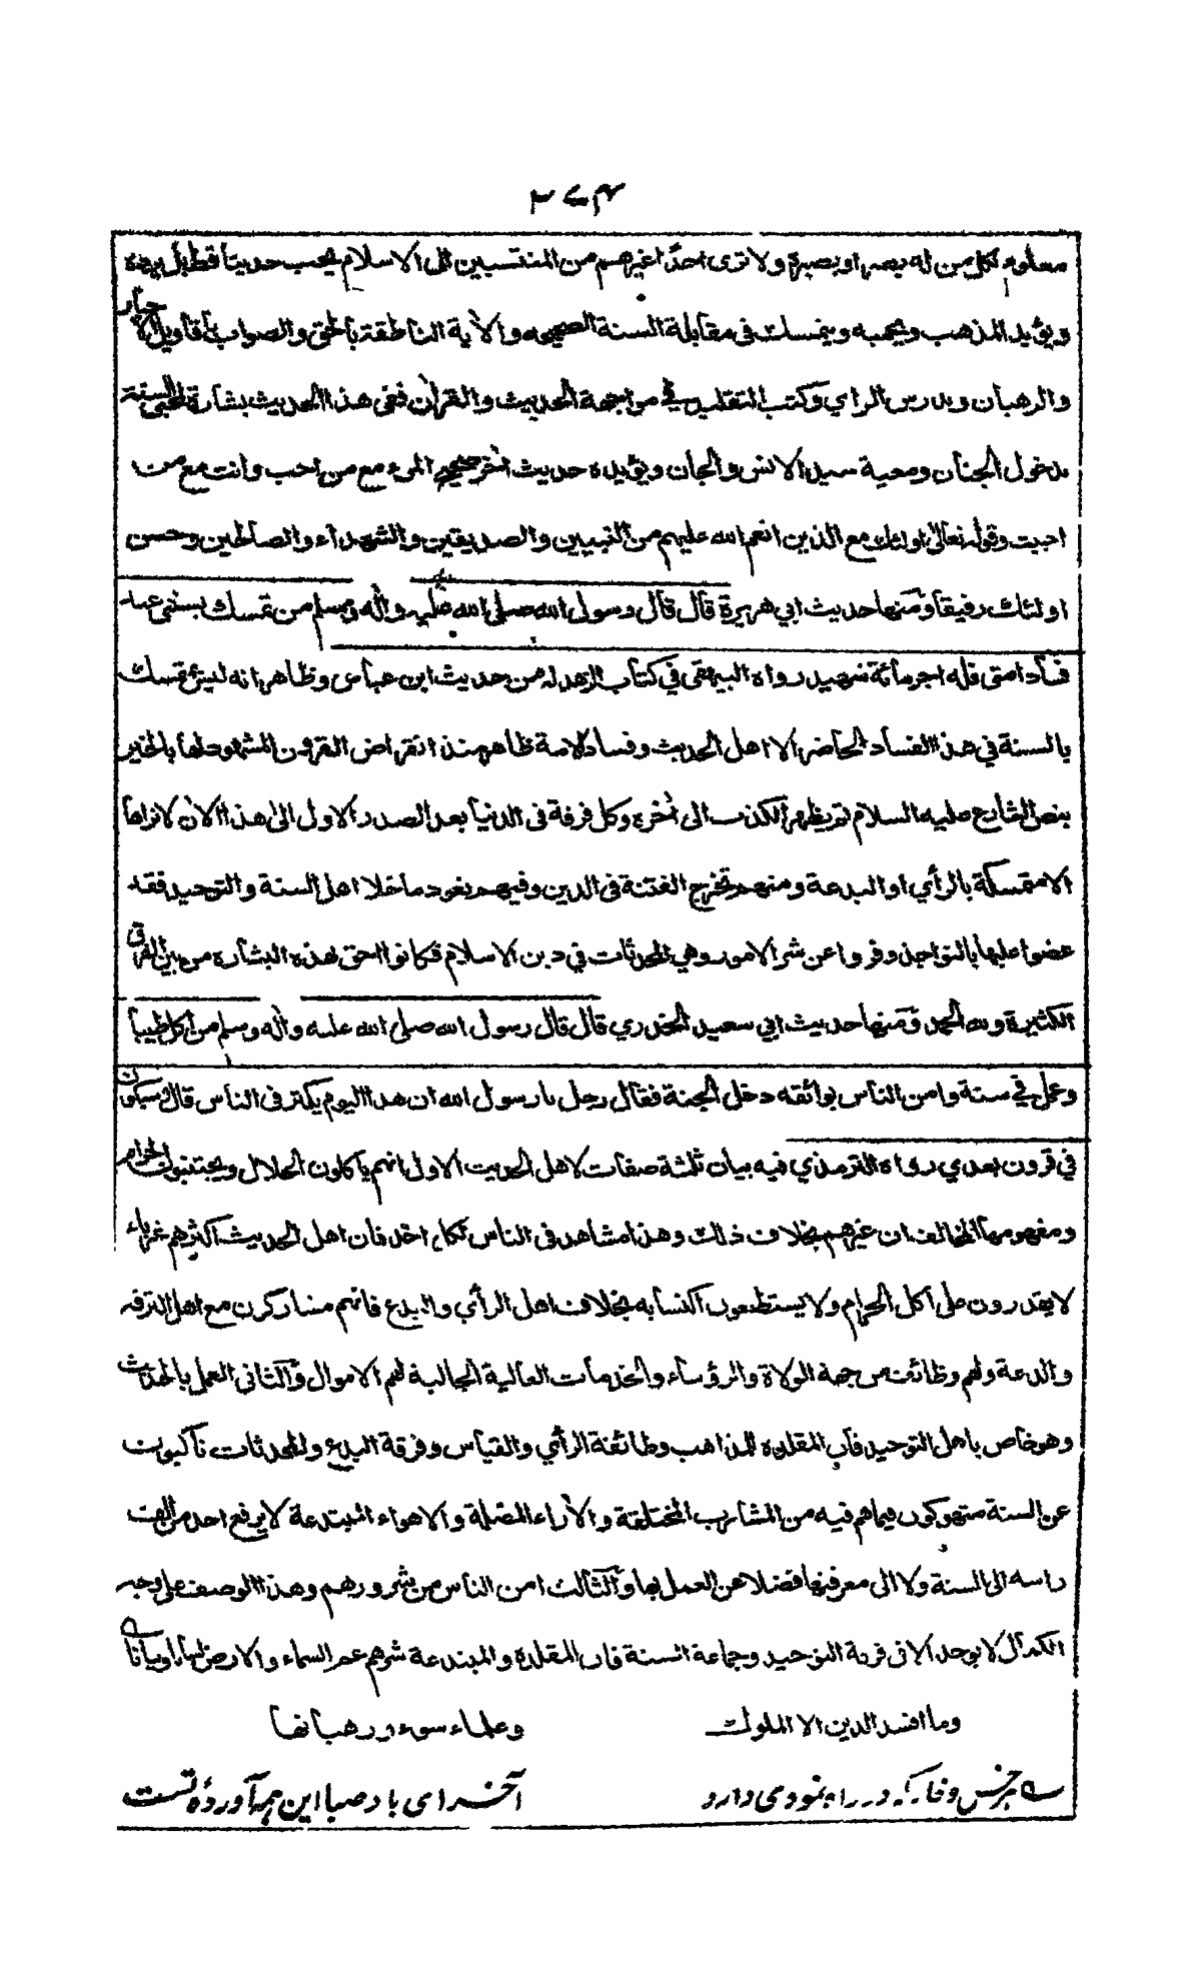 ٢٧٤
معلوم لكل من له بصر او بصيرة ولا ترى احدًا غيرهم من المنتسبين الى الاسلام يحب حديثا قط بل يرده
ويؤيد المذهب ويحميه ويتمسك في مقابلة السنة الصحيحه والأية الناطقة بالحق والصواب باقاويل الاحبار
والرهبان ويدرس الراي وكتب التقليد في مواجهة الحديث والقرأن ففي هذا الحديث بشارة لمحبى السنة
بدخول الجنان ومعية سيد الانس والجان ويؤيده حديث أخر صحيح المرء مع من احب وانت مع من
احببت وقوله تعالى اولئك مع الذين انعم الله عليهم من النبيين والصديقين والشهدآء والصالحين وحسن
اولئك رفيقا ومنها حديث ابي هريرة قال قال رسول الله صلى الله عليه وأله وسلم من تمسك بسنتي عند
فساد امتى فله اجر مائة شهيد رواه البيهقى في كتاب الزهد له من حديث ابن عباس وظاهر انه ليس تمسك
بالسنة في هذا الفساد الحاضر الا اهل الحديث وفساد الامة ظاهر منذ انقراض القرون المشهود لها بالخير
بنص الشارع عليه السلام ثم يظهر الكذب الى أخره وكل فرقة فى الدنيا بعد الصدر الاول الى هذا الأن لا نراها
الا متمسكة بالرأي او البدعة ومنهم تخرج الفتنة فى الدين وفيهم تعود ما خلا اهل السنة والتوحيد فقد
عضوا عليها بالنواجذ وفروا عن شر الامور وهي المحدثات في دين الاسلام فكانوا احق لهذه البشارة من بين الفرق
الكثيرة ولله الحمد ومنها حديث ابي سعيد الخدري قال قال رسول الله صلى الله عليه وأله وسلم من اكل طيبا
وعمل في سنة وامن الناس بوائقه دخل الجنة فقال رجل يا رسول الله ان هذا اليوم يكثر فى الناس قال وسيكون
في قرون بعدي رواه الترمذي فيه بيان ثلثة صفات لاهل الحديث الاول انهم يأكلون الحلال ويجتنبون الحرام
ومفهومها المخالف ان غيرهم بخلاف ذلك وهذا مشاهد فى الناس لكل احد فان اهل الحديث اكثرهم غرباء
لا يقدرون على اكل الحرام ولا يستطيعون اكتسابه بخلاف اهل الرأي والبدع فانهم مشاركون مع اهل الترفه
والدعة ولهم وظائف من جهة الولاة والرؤساء والخدمات العالية الجالبة لهم الاموال والثانى العمل بالحديث
وهو خاص باهل التوحيد فان المقلده للمذاهب وطائفة الرأي والقياس وفرقة البدع والمحدثات ناكبون
عن السنة متهوكون فيما هم فيه من المشارب المختلفة والأراء المضلة والاهواء المبتدعة لا يرفع احد منهم
راسه الى السنة ولا الى معرفتها فضلا عن العمل بها والثالث امن الناس من شرورهم وهذا الوصف على وجه
الكمال لا يوجد الا فى فرقة التوحيد وجماعة السنة فان المقلدة والمبتدعة شرهم عم السماء والارض
وما افسد الدين الا الملوك    وعلماء سوء ورهبانها
هر خس وخار كه در راه نمودى دارد    آخر اى باد صبا اين همه آوردۀ تست